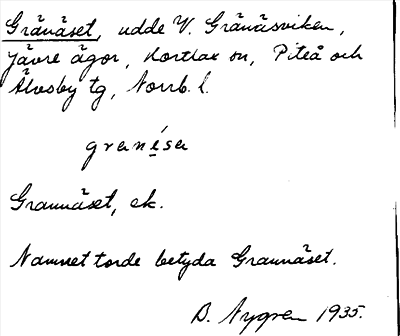 Gränäset, udde V. Gränäsviken,
Jävre ägor, Hortlax sn, Piteå och
Älvsby tg, Norrb. l.
granẹ́sa
Grannäset, ek.
Namnet torde betyda Grannäset.
B. Nygren 1935.